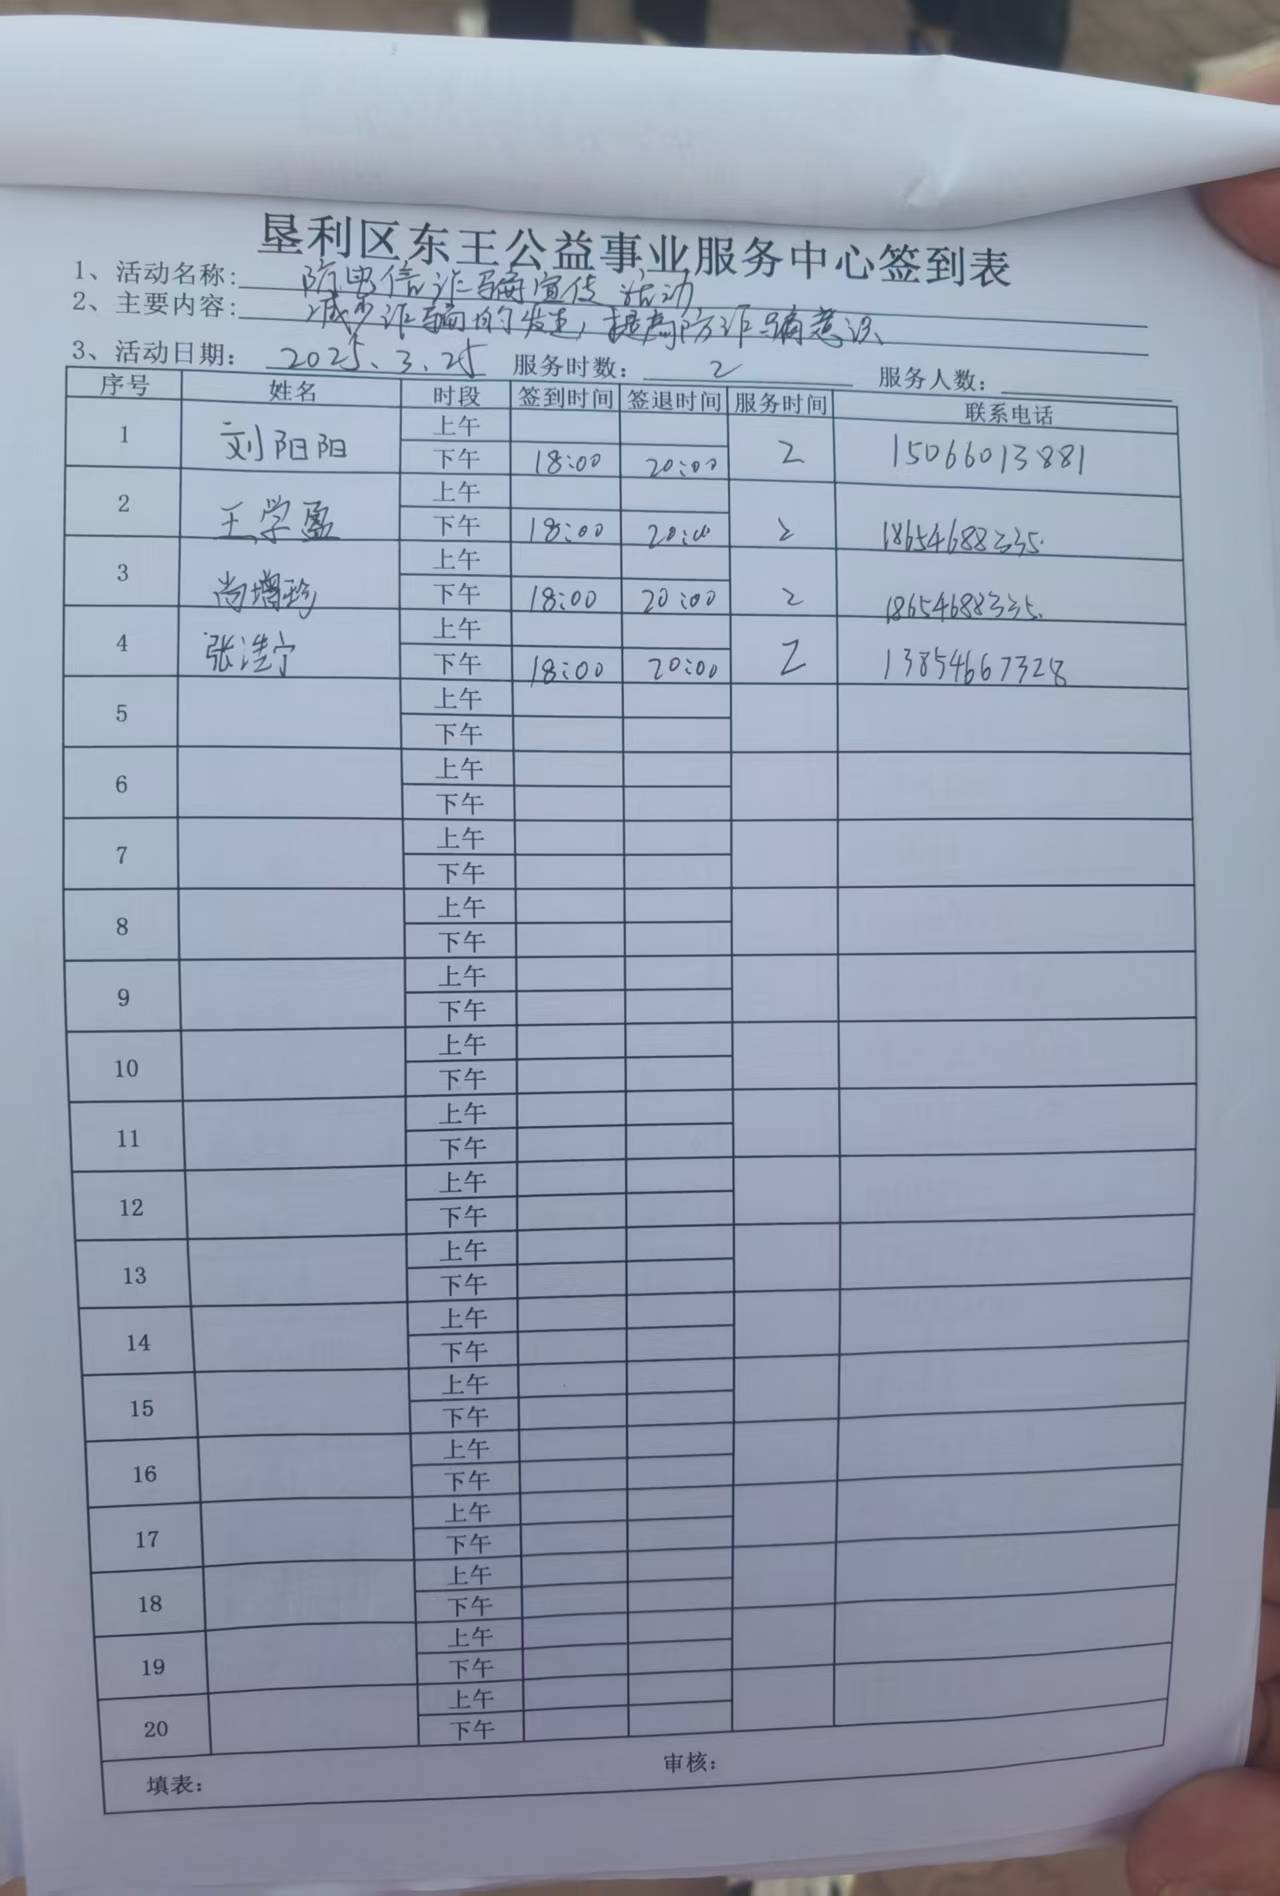 垦利区东王公益事业服务中心签到表
1、活动名称: 防电信诈骗宣传活动
2、主要内容: 减少诈骗的发生,提高防诈骗意识
3、活动日期: 2025.3.25 服务时数: 2 服务人数:
序号 姓名 时段 签到时间 签退时间 服务时间 联系电话
1 刘阳阳 上午
下午 18:00 20:00 2 15066013881
2 王学盈 上午
下午 18:00 20:00 2 18654688335
3 尚增珍 上午
下午 18:00 20:00 2 18654688335
4 张浩宁 上午
下午 18:00 20:00 2 13854667328
5 上午
下午
6 上午
下午
7 上午
下午
8 上午
下午
9 上午
下午
10 上午
下午
11 上午
下午
12 上午
下午
13 上午
下午
14 上午
下午
15 上午
下午
16 上午
下午
17 上午
下午
18 上午
下午
19 上午
下午
20 上午
下午
填表: 审核: